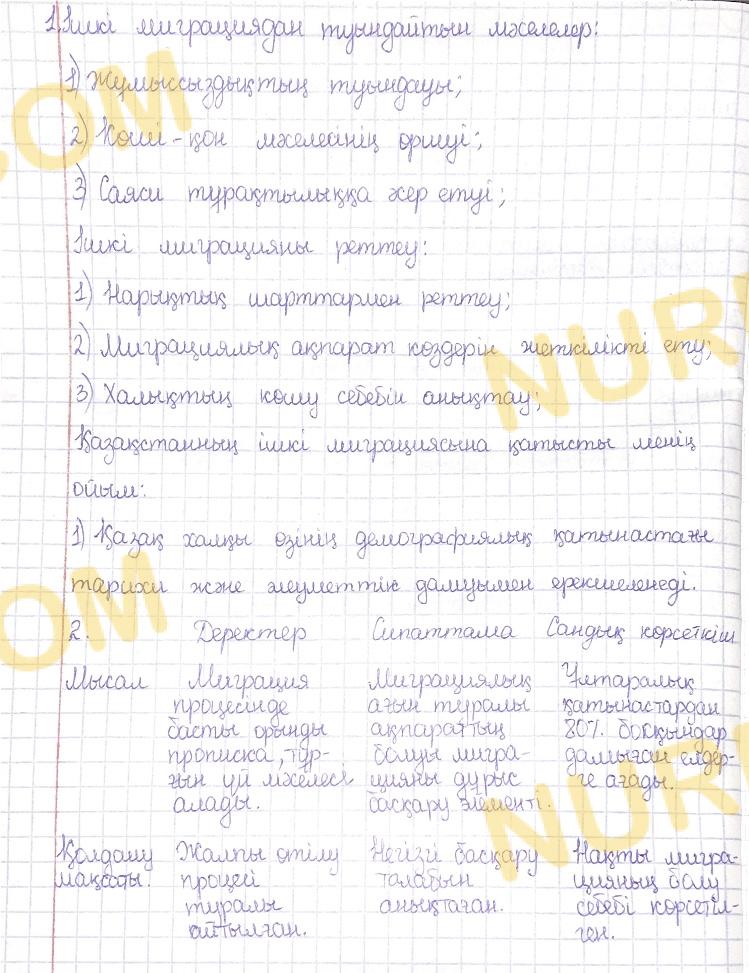 1. Ішкі миграциядан туындайтын мәселелер:
1) Жұмыссыздықтың туындауы;
2) Көші-қон мәселесінің өршуі;
3) Саяси тұрақтылыққа әсер етуі;
Ішкі миграцияны реттеу:
1) Нарықтық шарттармен реттеу;
2) Миграциялық ақпарат көздерін жеткілікті ету;
3) Халықтың көшу себебін анықтау;
Қазақстанның ішкі миграциясына қатысты менің
ойым:
1) Қазақ халқы өзінің демографиялық қатынастағы
тарихи және әлеуметтік дамуымен ерекшеленеді.
2. Деректер Сипаттама Сандық көрсеткіш
Мысал Миграция Миграциялық Ұлтаралық
процесінде ағын туралы қатынастардан
басты орынды ақпараттың 80% босқындар
прописка, тұр- болуы мигра- дамыған елдер-
ғын үй мәселесі цияны дұрыс ге ағады.
алады. басқару элементі.
Қолдану Жалпы өтілу Негізгі басқару Нақты мигра-
мақсаты. процесі талабын цияның болу
туралы анықтаған. себебі көрсетіл-
айтылған. ген.
COM
NUR
COM
NUR